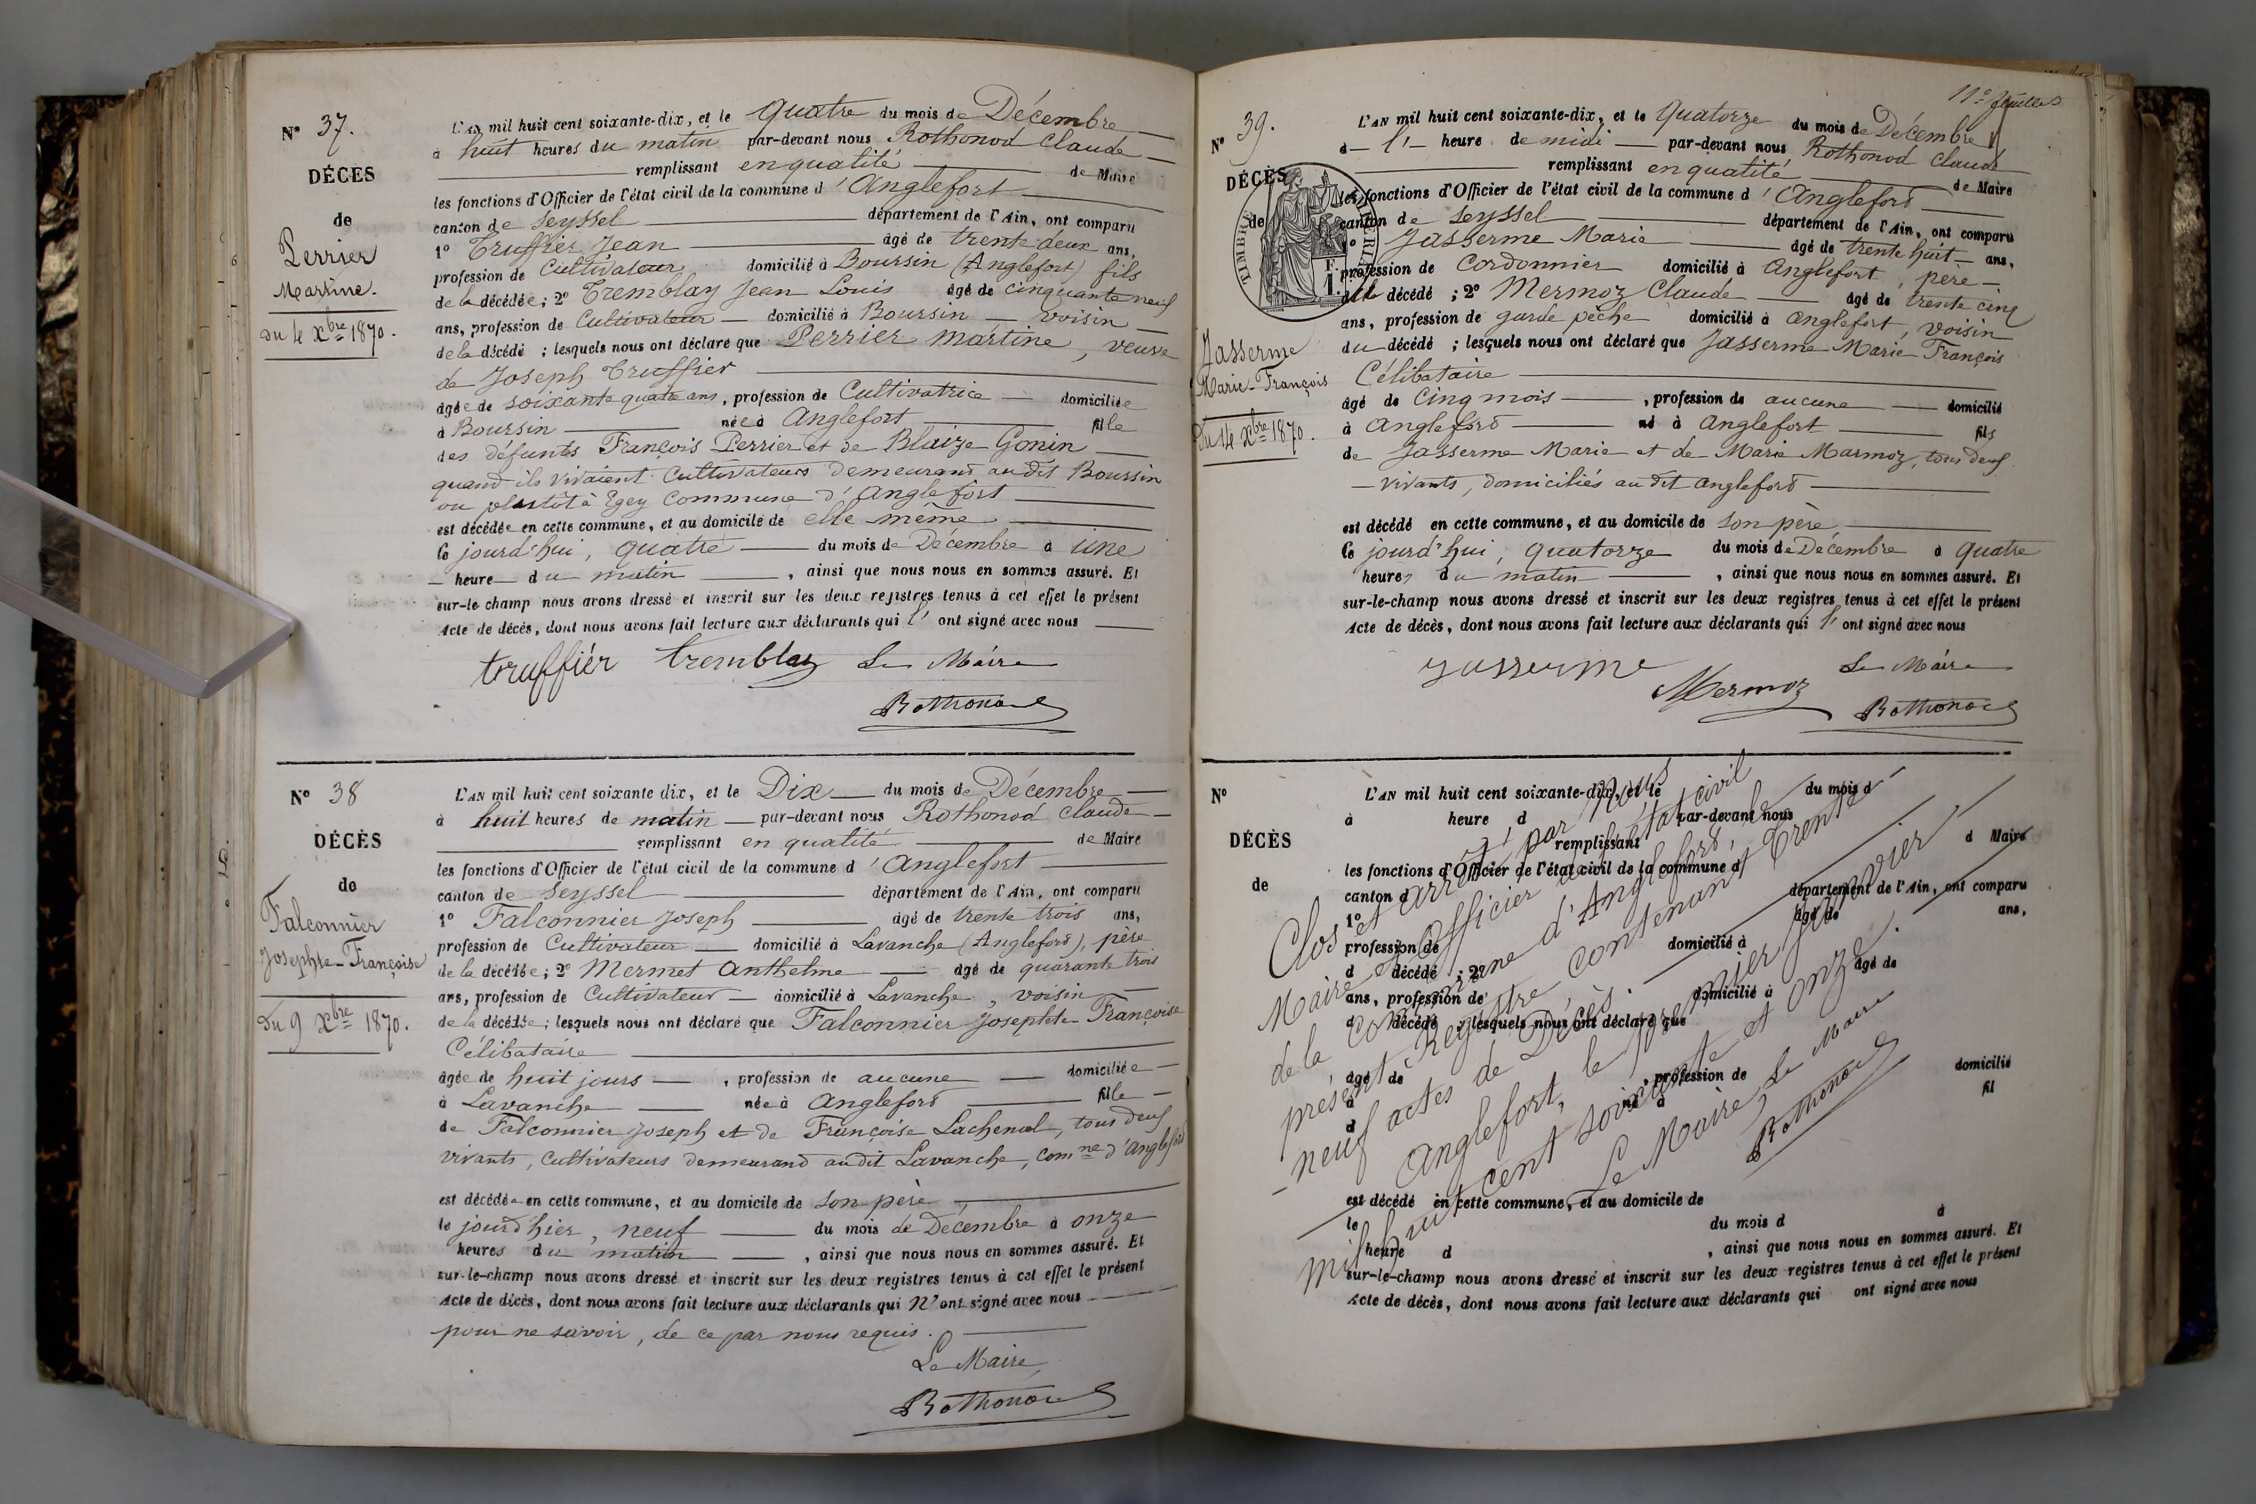 N° 37.
DÉCÈS
de
Perrier
Martine.
du 4 Xbre 1870.
L'AN mil huit cent soixante-dix, et le quatre du mois de Décembre
à huit heures du matin par-devant nous Rothonod Claude
remplissant en qualité de Maire
les fonctions d'Officier de l'état civil de la commune d'Anglefort
canton de Seyssel département de l'Ain, ont comparu
1° Truffier Jean âgé de trente deux ans,
profession de Cultivateur, domicilié à Boursin (Anglefort) fils
de la décédée; 2° Tremblay Jean Louis âgé de cinquante neuf
ans, profession de Cultivateur domicilié à Boursin voisin
de la décédé; lesquels nous ont déclaré que Perrier Martine, veuve
de Joseph Truffier
âgée de soixante quatre ans, profession de Cultivatrice domiciliée
à Boursin née à Anglefort fille
des défunts François Perrier et de Blaize Gonin
quand ils vivaient Cultivateurs demeurant au dit Boursin
ou plustôt à Egey Commune d'Anglefort
est décédée en cette commune, et au domicile de elle même
le jourd'hui, quatre du mois de Décembre à une
heure du matin, ainsi que nous nous en sommes assuré. Et
sur-le champ nous avons dressé et inscrit sur les deux registres tenus à cet effet le présent
Acte de décès, dont nous avons fait lecture aux déclarants qui l'ont signé avec nous
truffiér tremblay Le Maire
Rothonod
N° 38
DÉCÈS
de
Falconnier
Josephte-Françoise
du 9 Xbre 1870.
L'AN mil huit cent soixante dix, et le Dix du mois de Décembre
à huit heures de matin par-devant nous Rothonod Claude
remplissant en qualité de Maire
les fonctions d'Officier de l'état civil de la commune d'Anglefort
canton de Seyssel département de l'Ain, ont comparu
1° Falconnier Joseph âgé de trente trois ans,
profession de Cultivateur domicilié à Lavanche (Anglefort), père
de la décédée; 2° Mermet Anthelme âgé de quarante trois
ans, profession de Cultivateur domicilié à Lavanche, voisin
de la décédée; lesquels nous ont déclaré que Falconnier Josephte Françoise
Célibataire
âgée de huit jours, profession de aucune domiciliée
à Lavanche née à Anglefort fille
de Falconnier Joseph et de Françoise Lachenal, tous deux
vivants, cultivateurs demeurand audit Lavanche, comne d'Anglefort
est décédée en cette commune, et au domicile de son père
le jourd'hier, neuf du mois de Décembre à onze
heures du matin, ainsi que nous nous en sommes assuré. Et
sur-le-champ nous avons dressé et inscrit sur les deux registres tenus à cet effet le présent
Acte de décès, dont nous avons fait lecture aux déclarants qui n'ont signé avec nous
pour ne savoir, de ce par nous requis.
Le Maire,
Rothonod
11e feuillet
N° 39.
DÉCÈS
de
Jasserme
Marie-François
du 14 Xbre 1870.
TIMBRE IMPÉRIAL
F.
1.
L'AN mil huit cent soixante-dix, et le Quatorze du mois de Décembre
à l'heure de midi par-devant nous Rothonod Claude
remplissant en qualité de Maire
les fonctions d'Officier de l'état civil de la commune d'Anglefort
canton de Seyssel département de l'Ain, ont comparu
1° Jasserme Marie âgé de trente huit ans,
profession de Cordonnier domicilié à Anglefort, père
du décédé; 2° Mermoz Claude âgé de trente cinq
ans, profession de garde pêche domicilié à Anglefort, voisin
du décédé; lesquels nous ont déclaré que Jasserme Marie François
Célibataire
âgé de Cinq mois, profession de aucune domicilié
à Anglefort né à Anglefort fils
de Jasserme Marie et de Marie Marmoz, tous deux
vivants, domiciliés au dit Anglefort
est décédé en cette commune, et au domicile de son père
le jourd'hui, quatorze du mois de Décembre à quatre
heures du matin, ainsi que nous nous en sommes assuré. Et
sur-le-champ nous avons dressé et inscrit sur les deux registres tenus à cet effet le présent
Acte de décès, dont nous avons fait lecture aux déclarants qui l'ont signé avec nous
Jasserme Mermoz Le Maire
Rothonod
N°
DÉCÈS
de
L'AN mil huit cent soixante-dix, et le du mois d
à heure d par-devant nous
remplissant d Maire
les fonctions d'Officier de l'état civil de la commune d
canton d département de l'Ain, ont comparu
1° âgé de ans,
profession de domicilié à
d décédé ; 2° âgé de
ans, profession de domicilié à
d décédé ; lesquels nous ont déclaré que
âgé de , profession de domicilié
à né à fil
d
est décédé en cette commune, et au domicile de
le du mois d à
heure d , ainsi que nous nous en sommes assuré. Et
sur-le-champ nous avons dressé et inscrit sur les deux registres tenus à cet effet le présent
Acte de décès, dont nous avons fait lecture aux déclarants qui ont signé avec nous
Clos et arrêté par Nous
Maire et officier de l'état civil
de la Commune d'Anglefort, le
présent Registre contenant Trente
neuf actes de Décès.
Anglefort, le premier Janvier
mil huit cent soixante et onze.
Le Maire, Le Maire
Rothonod